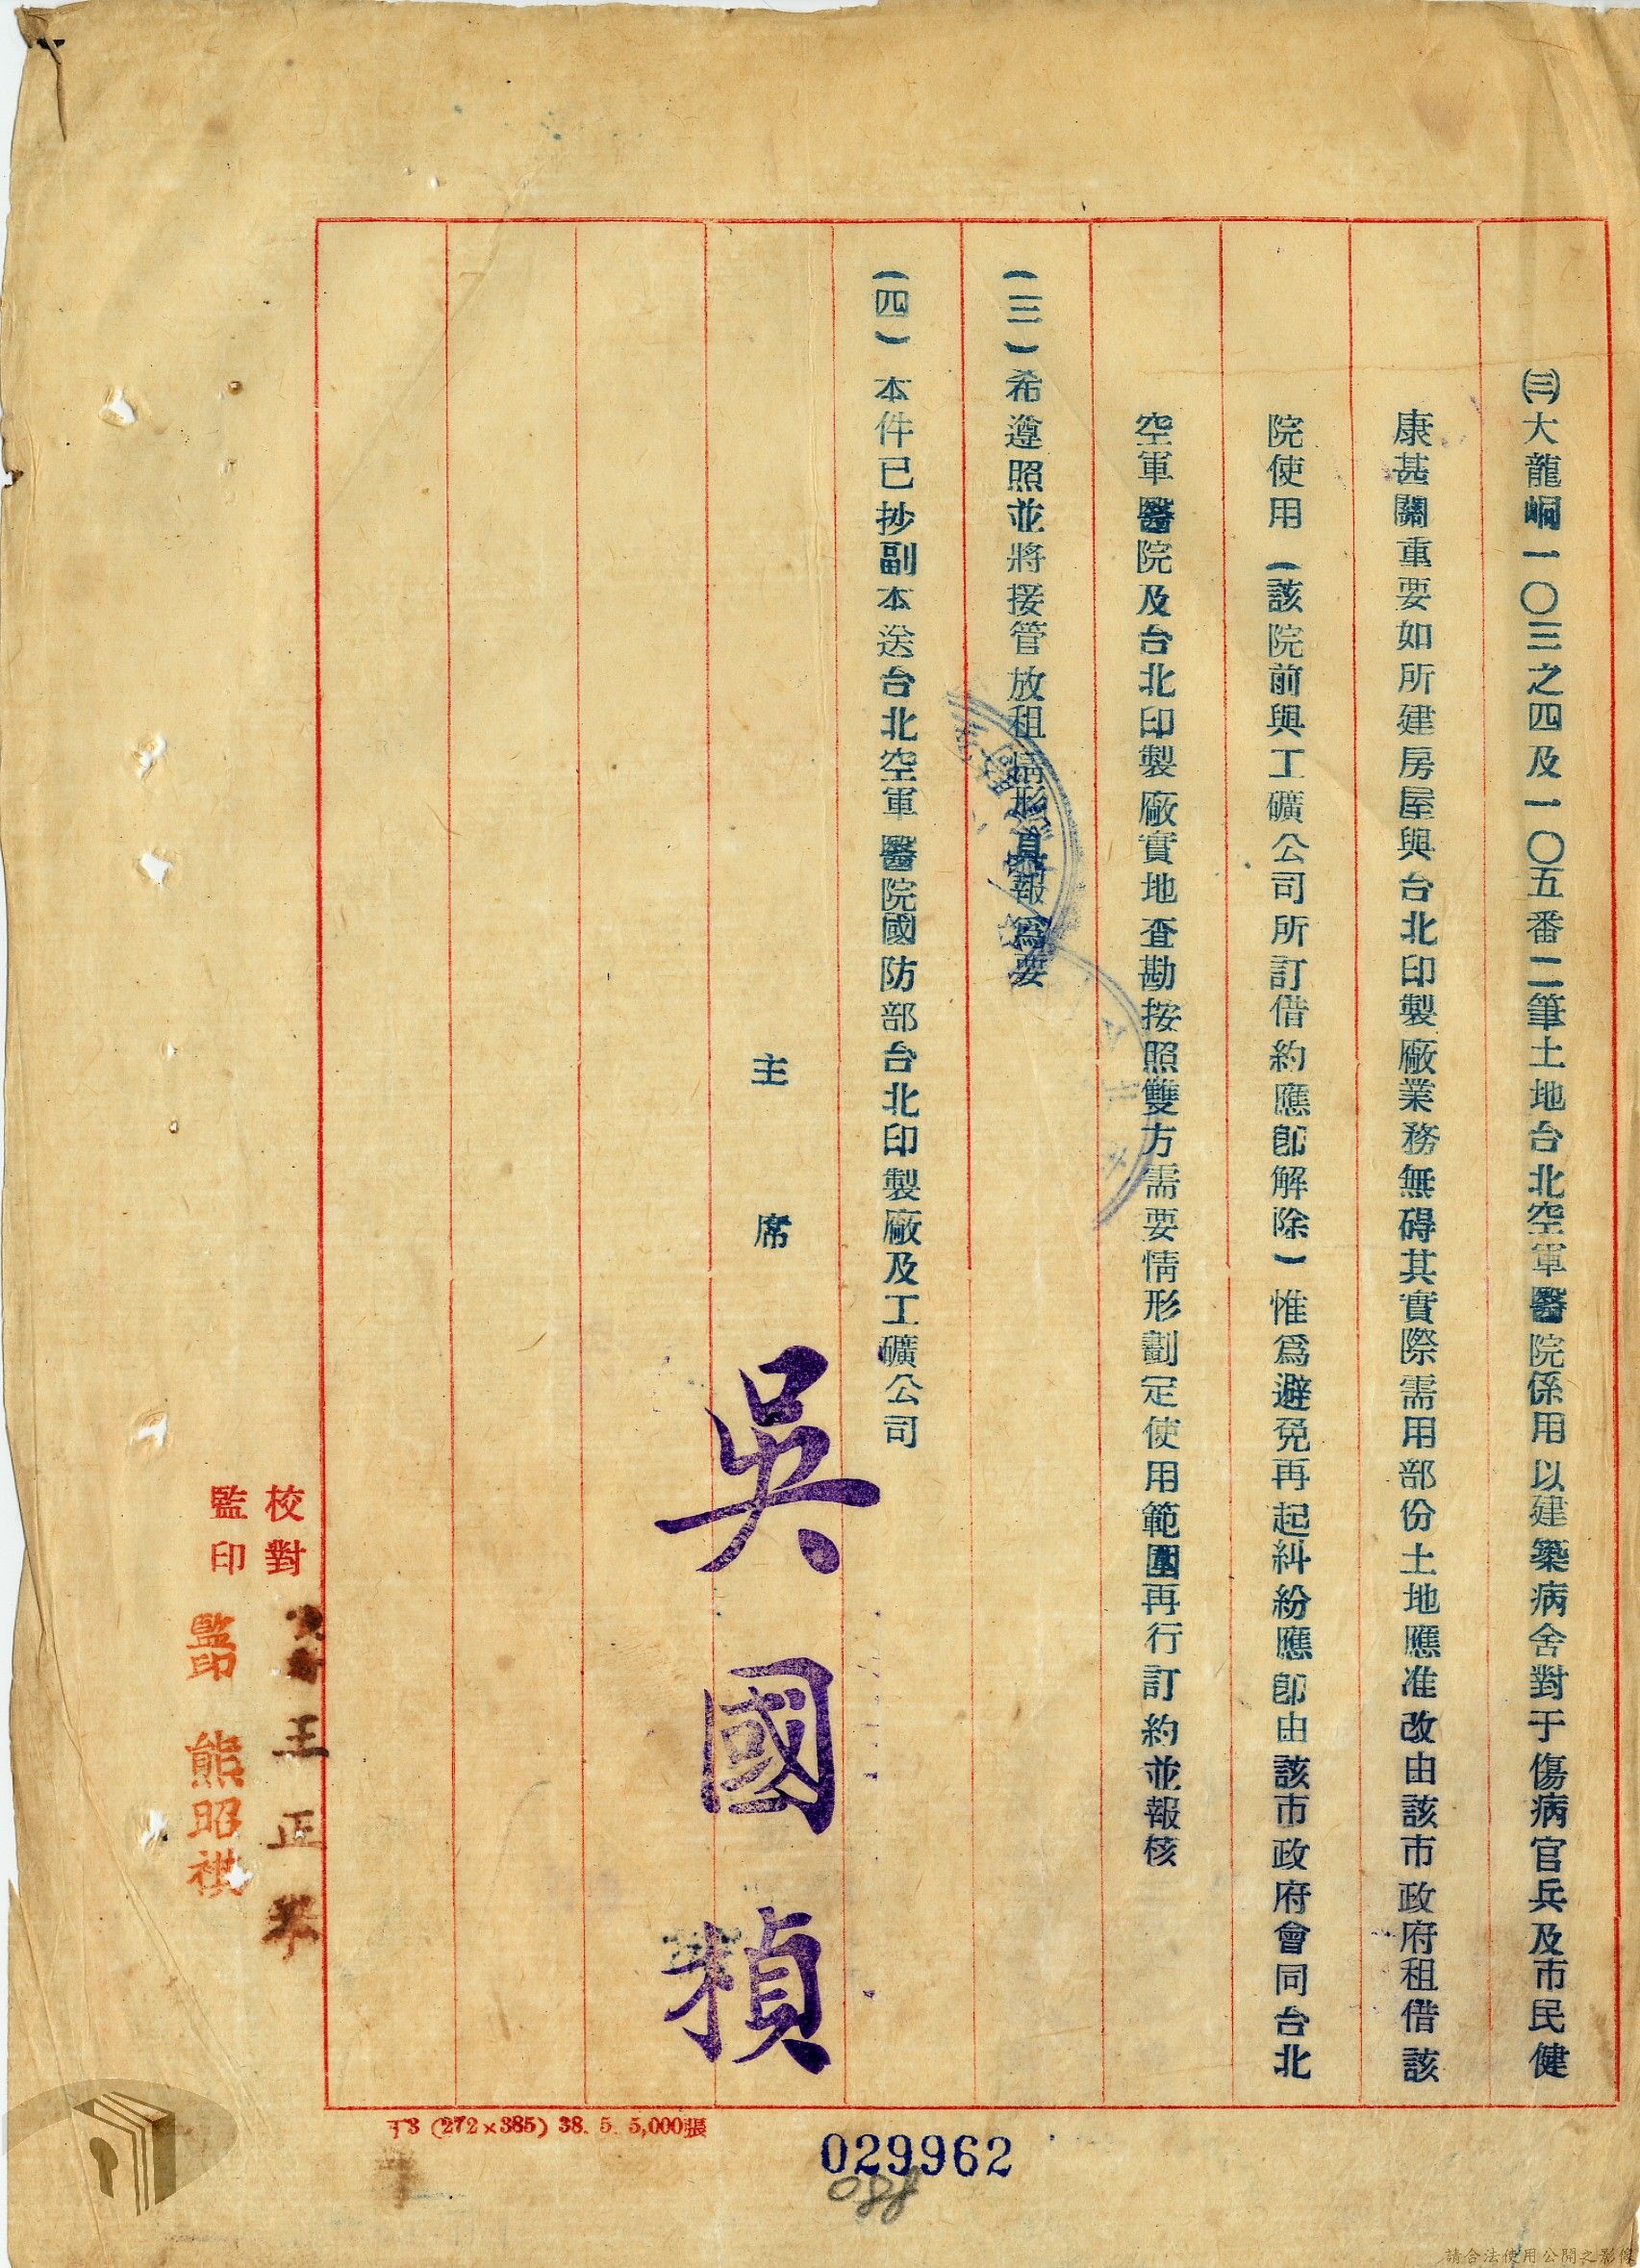 ㈢大龍峒一〇三之四及一〇五番二筆土地台北空軍醫院係用以建築病舍對于傷病官兵及市民健
康甚關重要如所建房屋與台北印製廠業務無碍其實際需用部份土地應准改由該市政府租借該
院使用(該院前與工礦公司所訂借約應卽解除)惟爲避免再起糾紛應卽由該市政府會同台北
空軍醫院及台北印製廠實地查勘按照雙方需要情形劃定使用範圍再行訂約並報核
(三)希遵照並將接管放租情形具報爲要
(四)本件已抄副本送台北空軍醫院國防部台北印製廠及工礦公司
主席
吳國楨
校對 王正
監印 監印 熊昭祺
丁3 (272×385) 38. 5. 5,000張
029962
088
請合法使用公開之影像